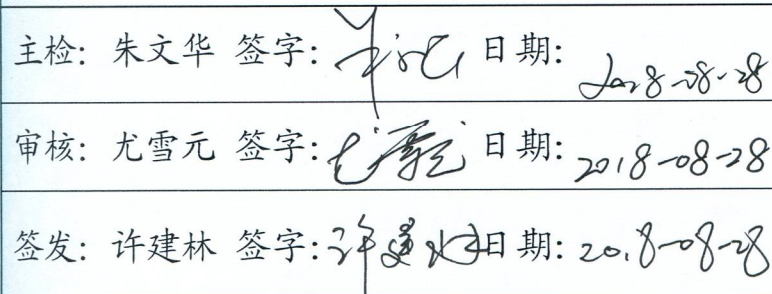 主检: 朱文华 签字: 朱文华 日期: 2018-08-28
审核: 尤雪元 签字: 尤雪元 日期: 2018-08-28
签发: 许建林 签字: 许建林 日期: 2018-08-28